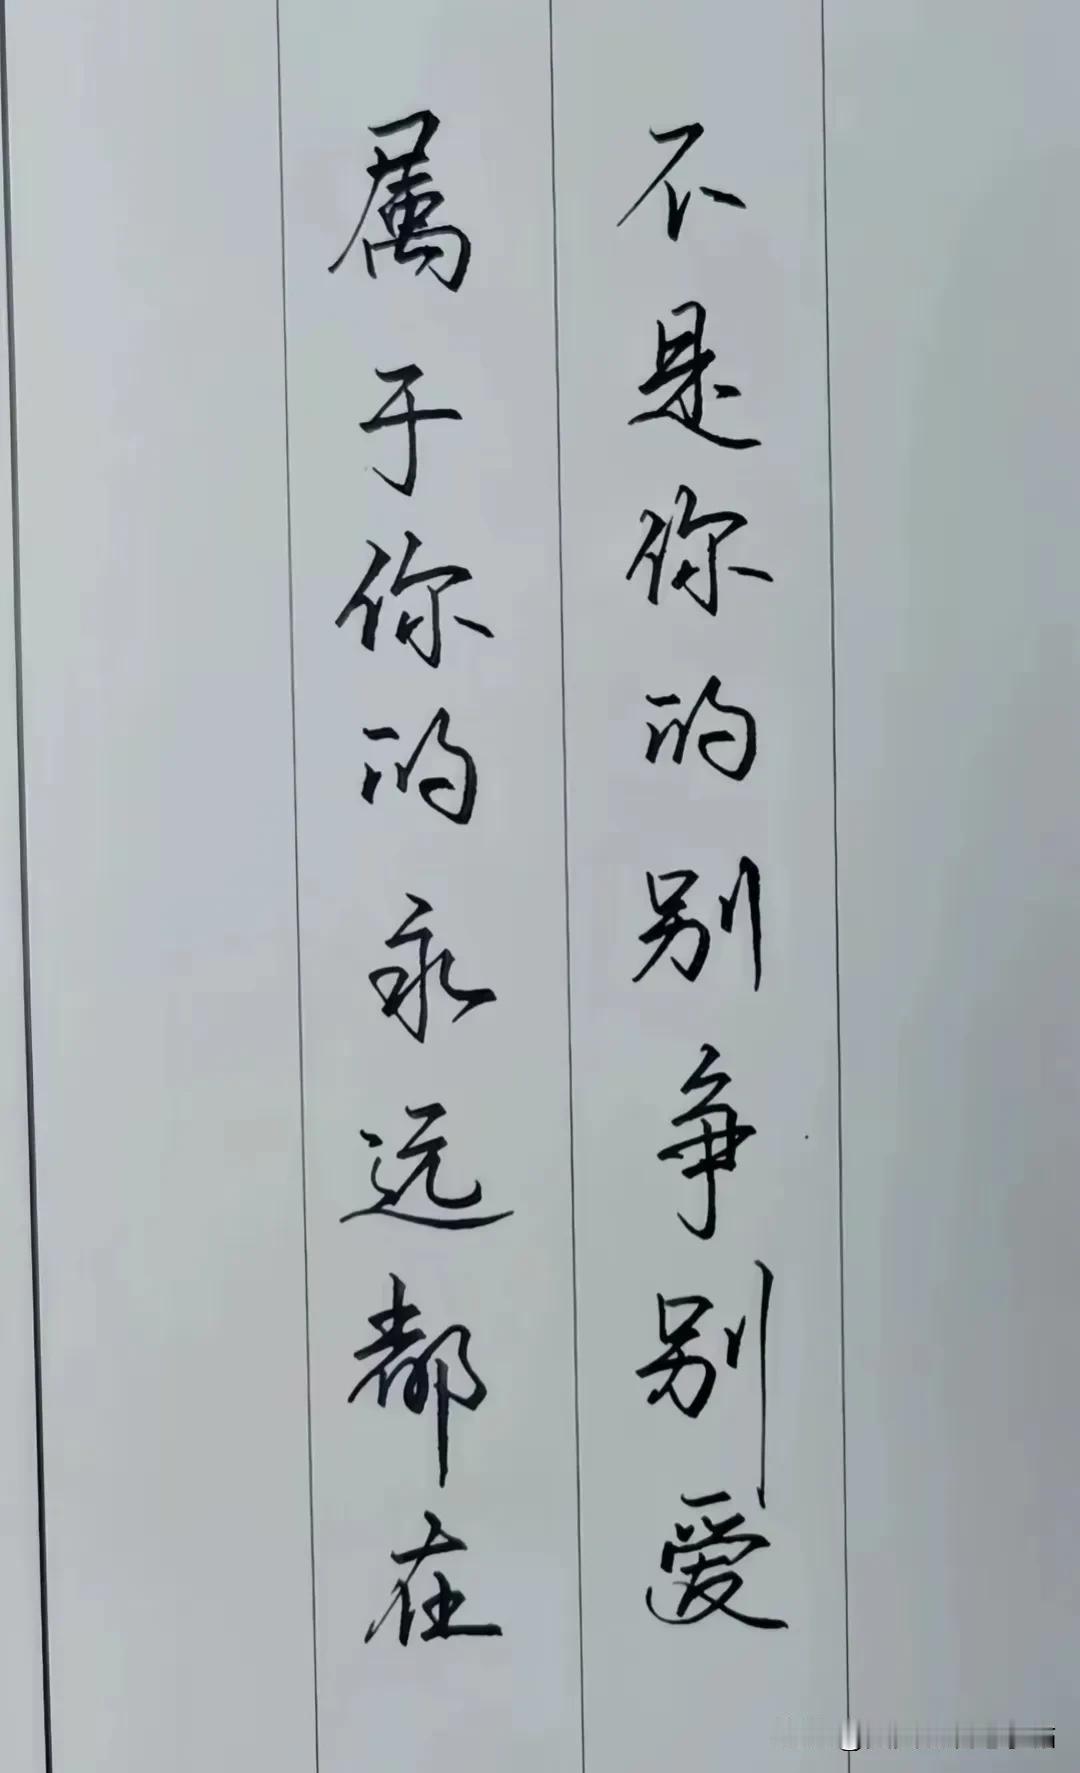 不是你的别争别爱
属于你的永远都在